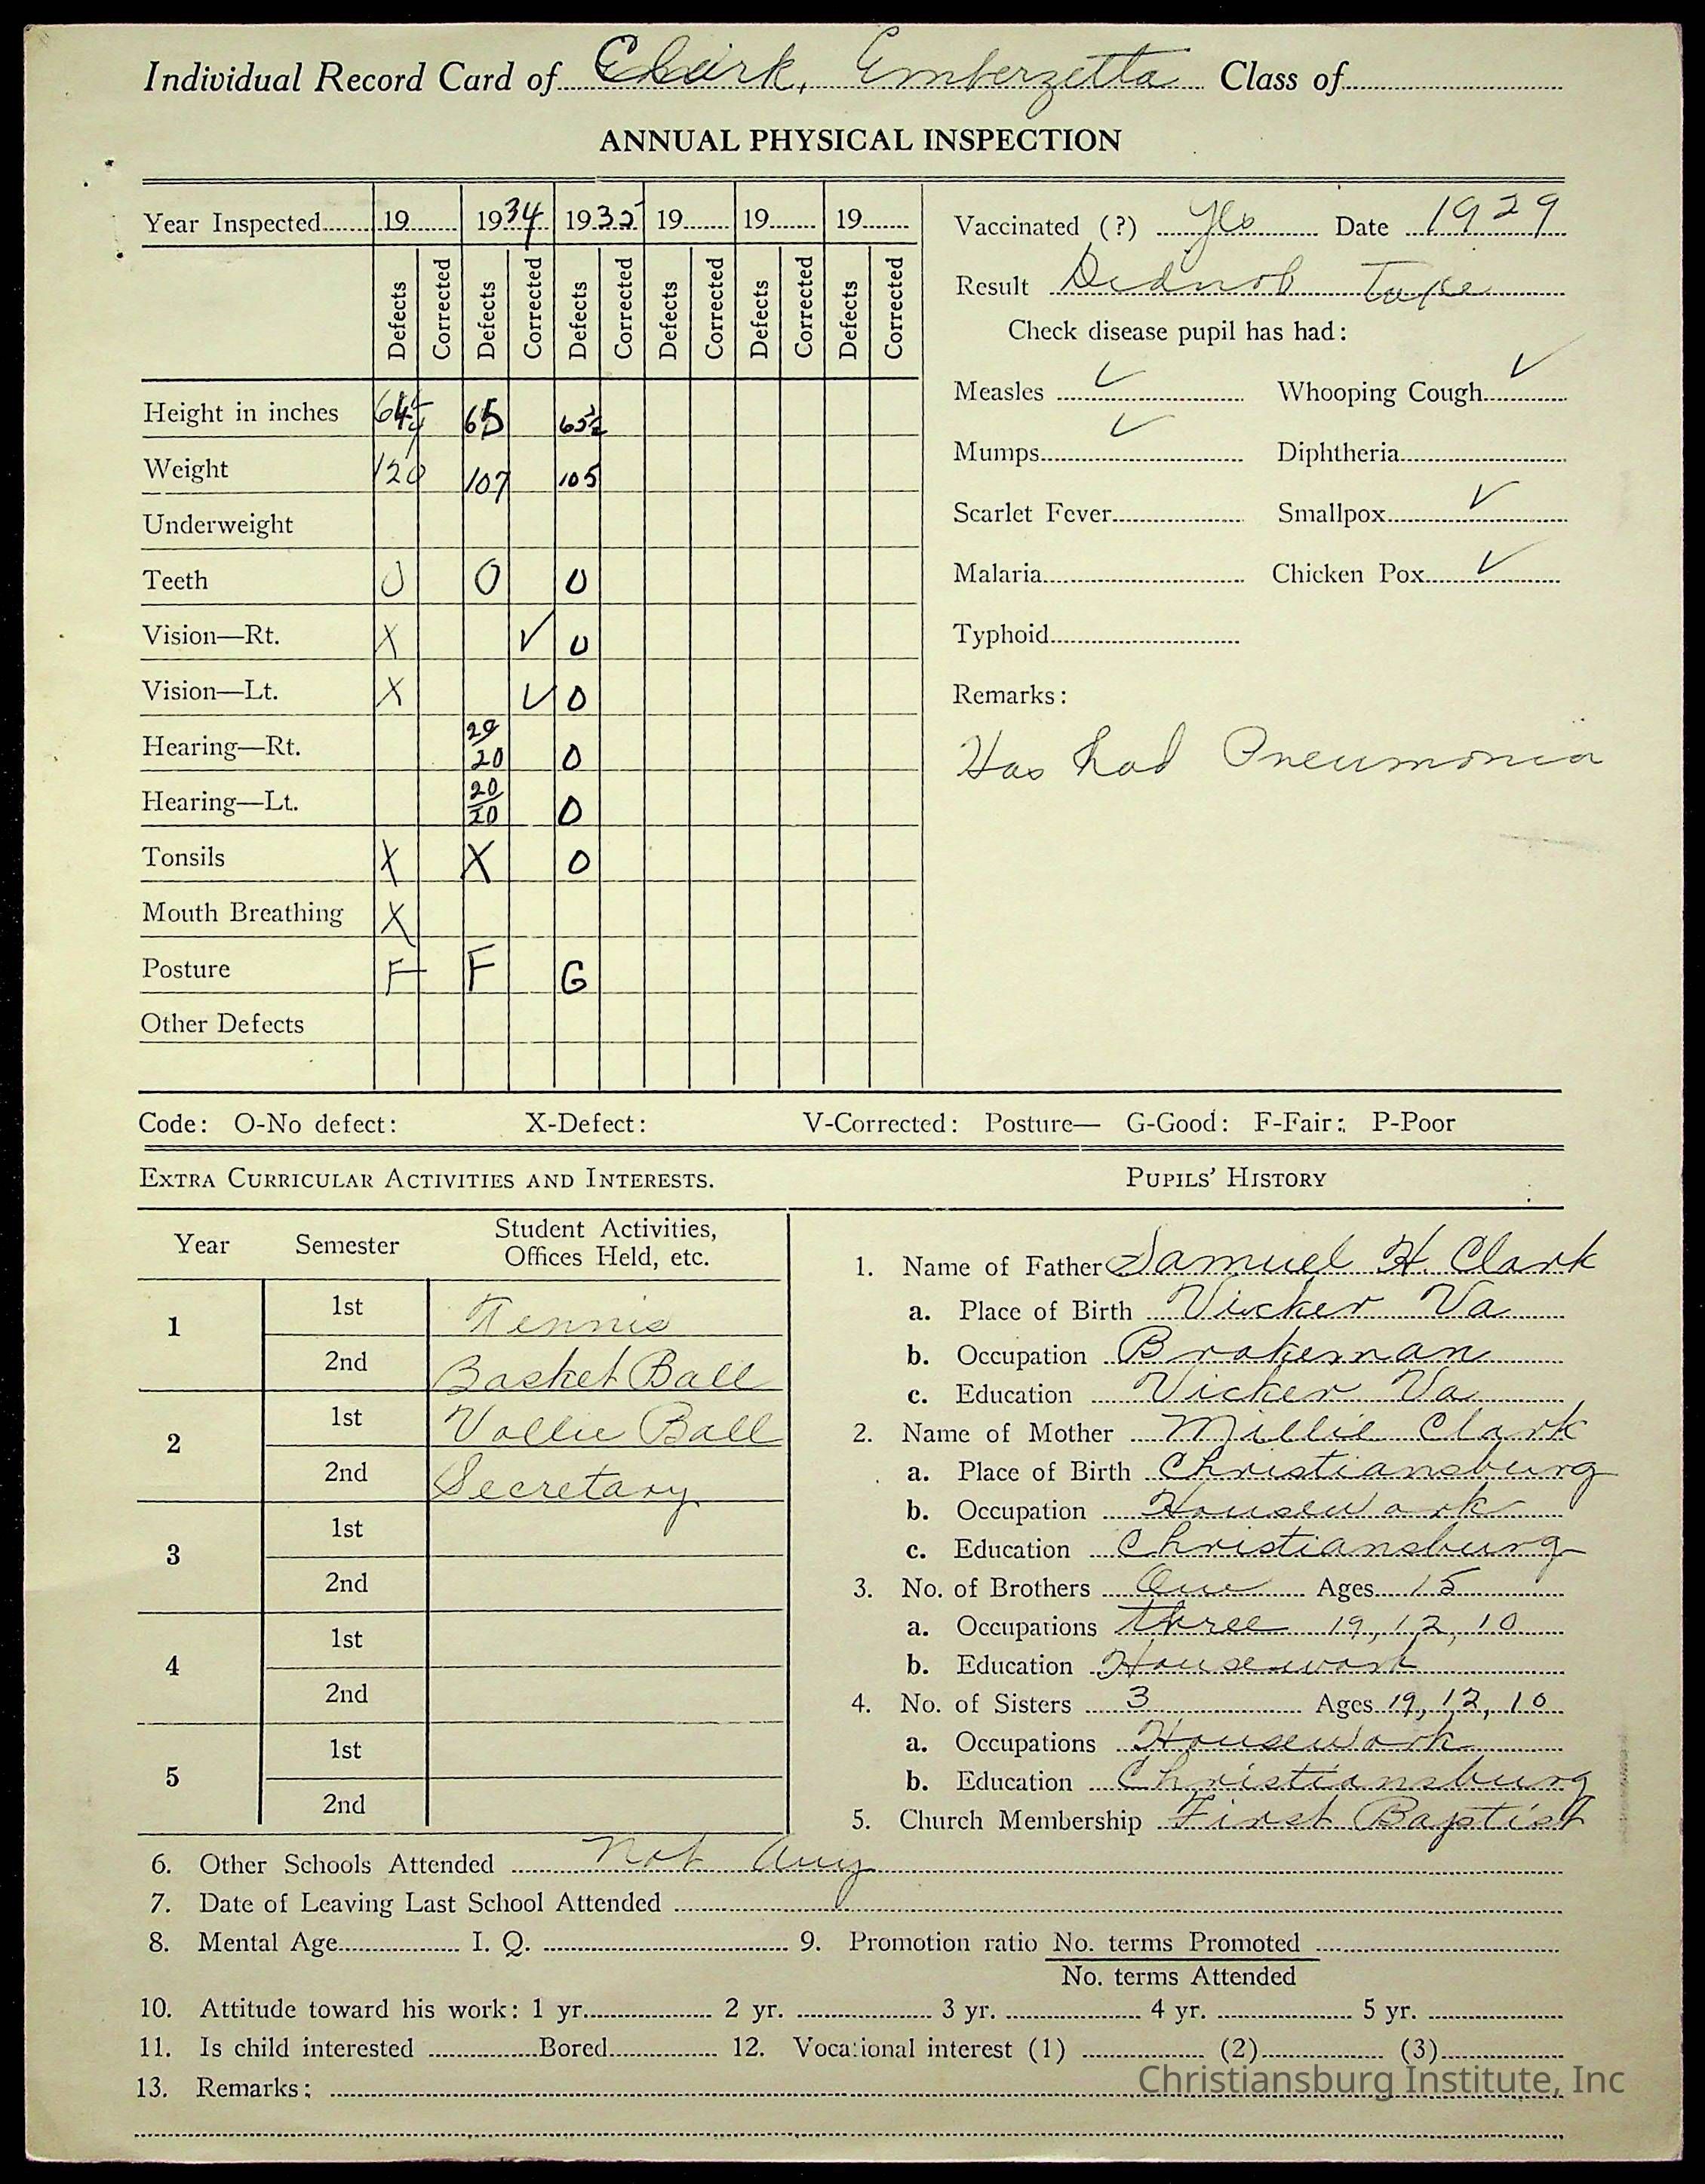 Individual Record Card of Clark, Emberzetta Class of
ANNUAL PHYSICAL INSPECTION
Year Inspected 19 1934 1935 19 19 19
Defects Corrected Defects Corrected Defects Corrected Defects Corrected Defects Corrected Defects Corrected
Height in inches 64 65 65½
Weight 120 107 105
Underweight
Teeth O O O
Vision—Rt. X V O
Vision—Lt. X V O
Hearing—Rt. 20/20 O
Hearing—Lt. 20/20 O
Tonsils X X O
Mouth Breathing X
Posture F F G
Other Defects
Vaccinated (?) Yes Date 1929
Result Did not Take
Check disease pupil has had:
Measles ✓ Whooping Cough ✓
Mumps ✓ Diphtheria
Scarlet Fever Smallpox ✓
Malaria Chicken Pox ✓
Typhoid
Remarks:
Has had Pneumonia
Code: O-No defect: X-Defect: V-Corrected: Posture— G-Good: F-Fair: P-Poor
EXTRA CURRICULAR ACTIVITIES AND INTERESTS.
Year Semester Student Activities,
Offices Held, etc.
1 1st Tennis
2nd Basket Ball
2 1st Vollie Ball
2nd Secretary
3 1st
2nd
4 1st
2nd
5 1st
2nd
PUPILS' HISTORY
1. Name of Father Samuel H. Clark
a. Place of Birth Vicker Va
b. Occupation Brakeman
c. Education Vicker Va
2. Name of Mother Millie Clark
a. Place of Birth Christiansburg
b. Occupation HouseWork
c. Education Christiansburg
3. No. of Brothers One Ages 15
a. Occupations three 19, 12, 10
b. Education Housework
4. No. of Sisters 3 Ages 19, 12, 10
a. Occupations HouseWork
b. Education Christiansburg
5. Church Membership First Baptist
6. Other Schools Attended not any
7. Date of Leaving Last School Attended
8. Mental Age I. Q. 9. Promotion ratio No. terms Promoted
No. terms Attended
10. Attitude toward his work: 1 yr. 2 yr. 3 yr. 4 yr. 5 yr.
11. Is child interested Bored 12. Vocational interest (1) (2) (3)
13. Remarks:
Christiansburg Institute, Inc